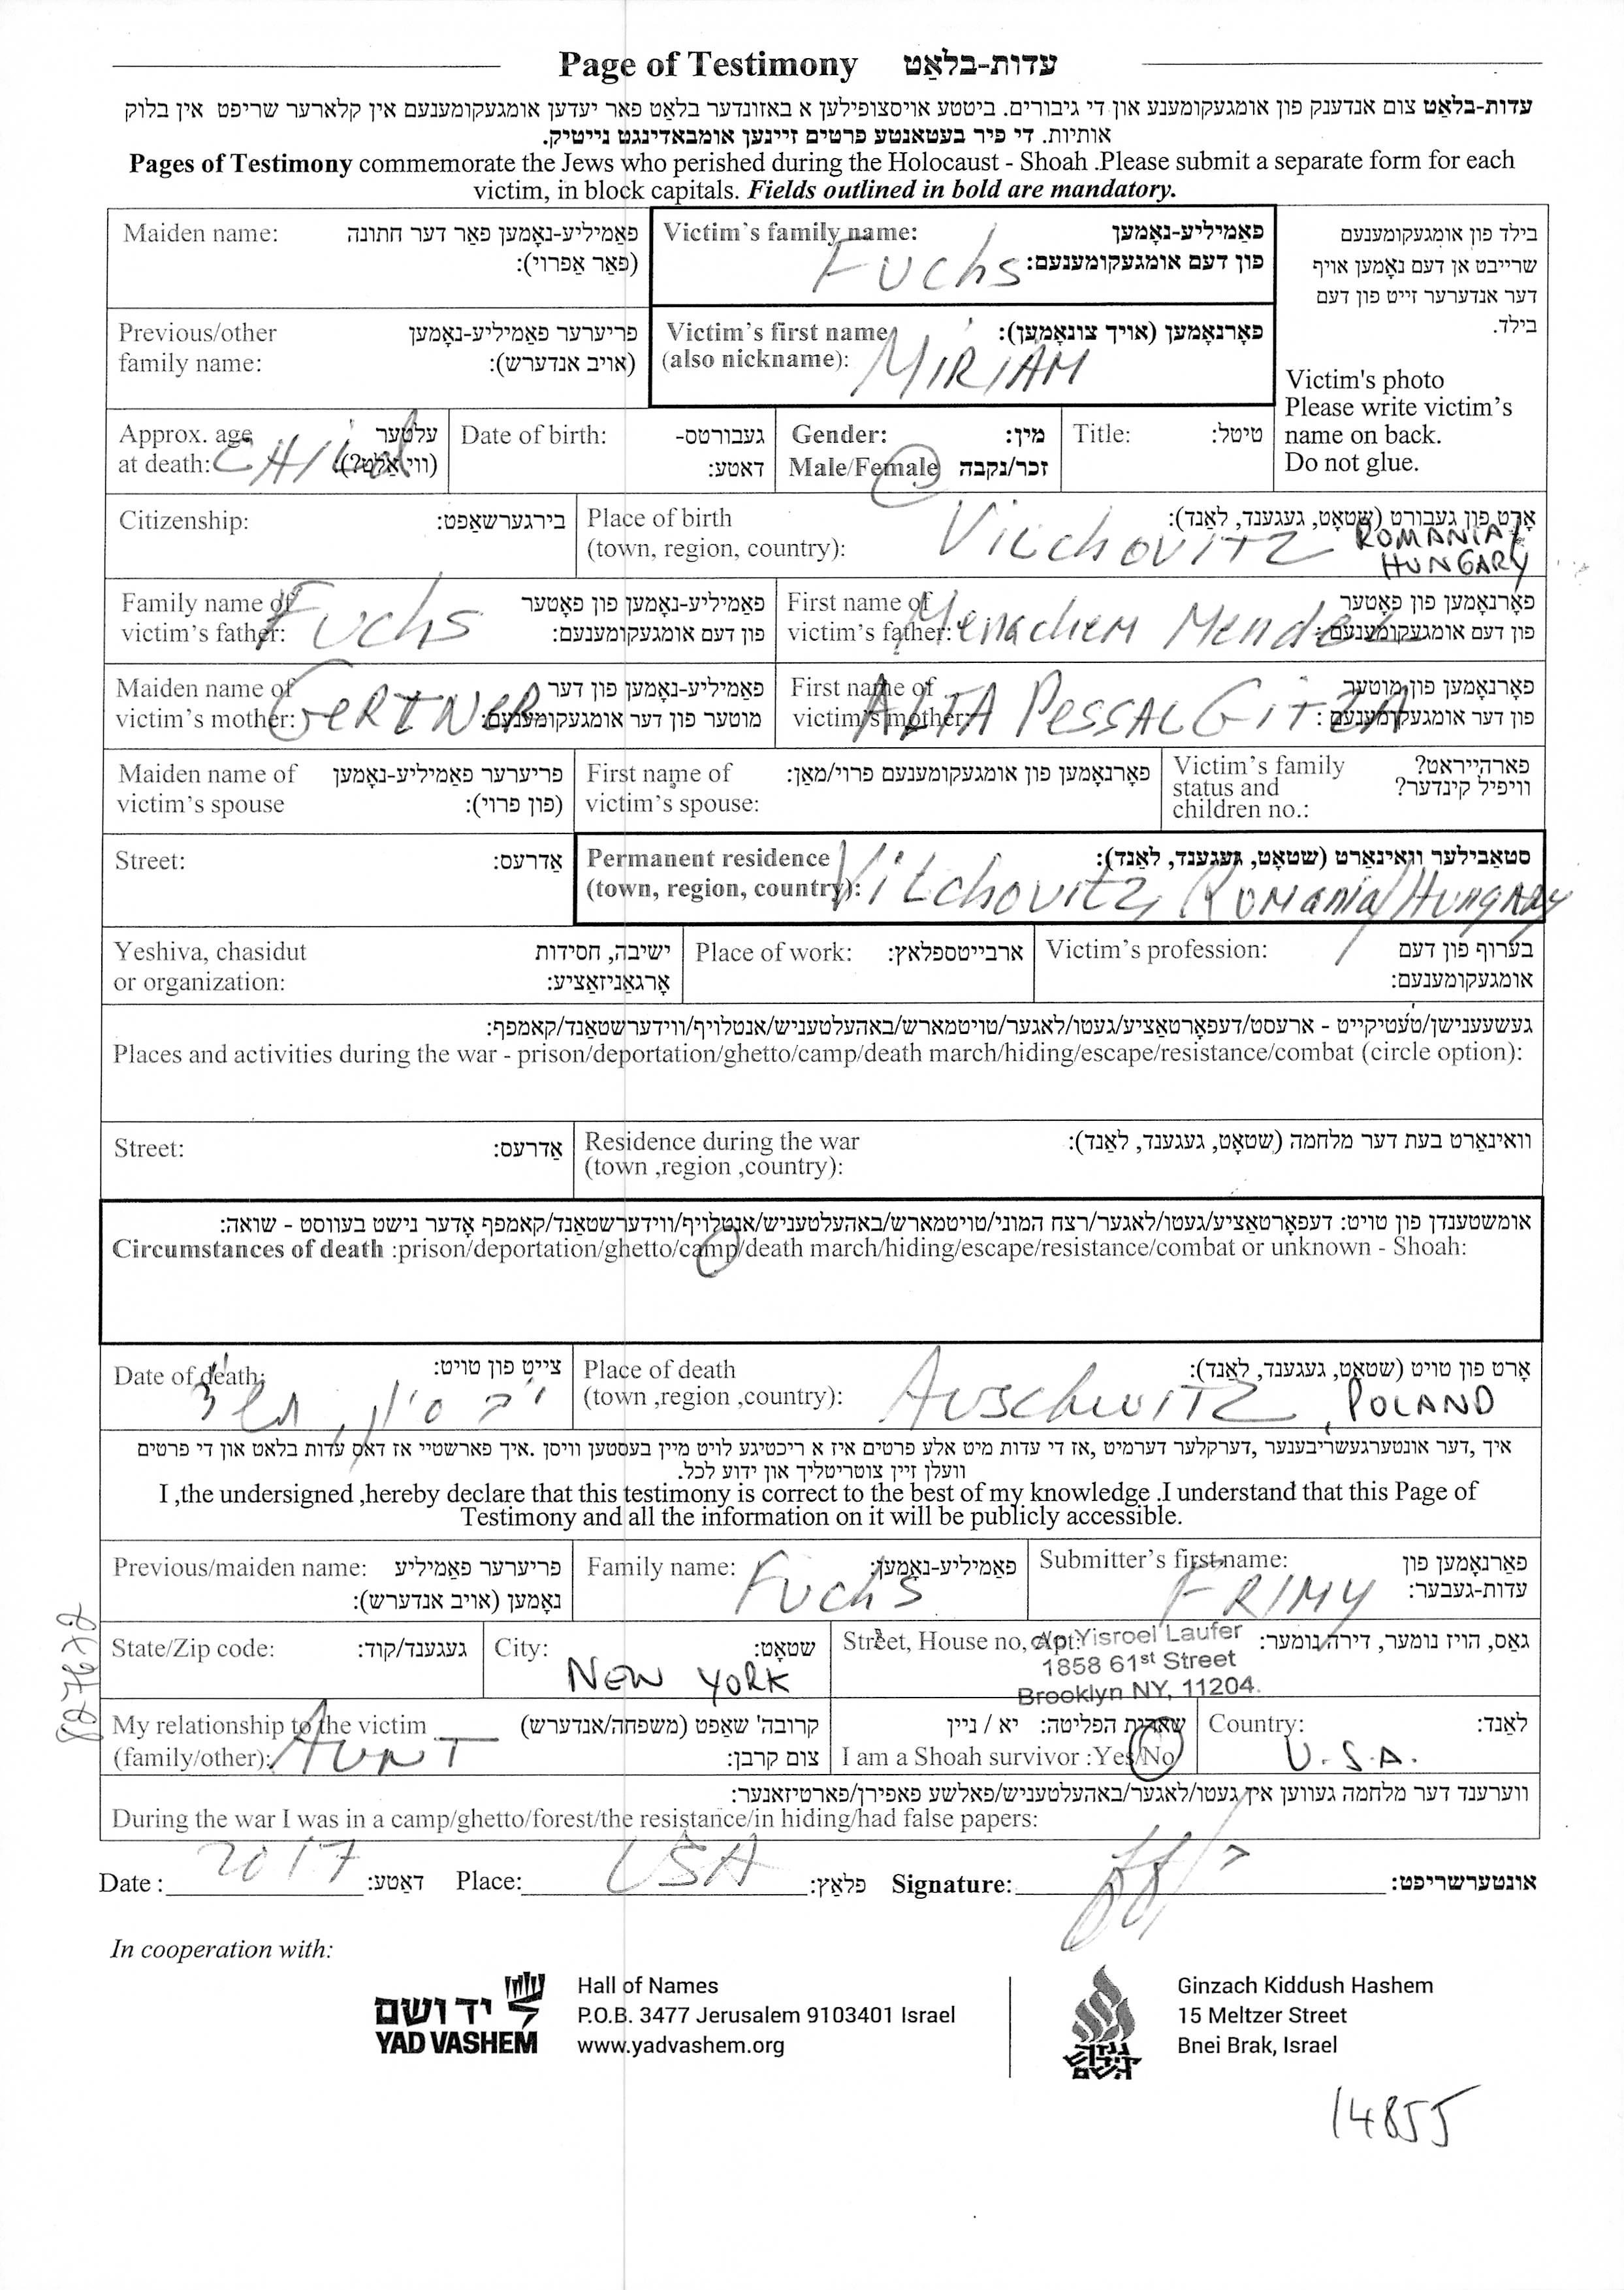 Page of Testimony עדות-בלאַט
עדות-בלאַט צום אנדענק פון אומגעקומענע און די גיבורים. ביטטע אויסצופילען א באזונדער בלאַט פאר יעדען אומגעקומענעם אין קלארער שריפט אין בלוק
אותיות. די פיר בעטאנטע פרטים זיינען אומבאדינגט נייטיק.
Pages of Testimony commemorate the Jews who perished during the Holocaust - Shoah .Please submit a separate form for each
victim, in block capitals. Fields outlined in bold are mandatory.
Maiden name: פאַמיליע-נאָמען פאַר דער חתונה
(פאַר אַפרוי):
Victim's family name: פאַמיליע-נאָמען
פון דעם אומגעקומענעם:
Fuchs
בילד פון אומגעקומענעם
שרייבט אן דעם נאָמען אויף
דער אנדערער זייט פון דעם
בילד.
Victim's photo
Please write victim's
name on back.
Do not glue.
Previous/other פריערער פאַמיליע-נאָמען
family name: (אויב אנדערש):
Victim's first name פאָרנאָמען (אויך צונאָמען):
(also nickname): MIRIAM
Approx. age עלטער
at death: (ווי אַלט?)
CHILd
Date of birth: געבורטס-
דאטע:
Gender: מין:
Male/Female זכר/נקבה
Title: טיטל:
Citizenship: בירגערשאַפט:
Place of birth אָרט פון געבורט (שטאָט, געגענד, לאַנד):
(town, region, country): Vilchovitz ROMANIA/
HUNGARY
Family name of פאַמיליע-נאָמען פון פאָטער
victim's father: פון דעם אומגעקומענעם:
Fuchs
First name of פאָרנאָמען פון פאָטער
victim's father: פון דעם אומגעקומענעם:
Menachem Mendel
Maiden name of פאַמיליע-נאָמען פון דער
victim's mother: מוטער פון דער אומגעקומענעם:
GERTNER
First name of פאָרנאָמען פון מוטער
victim's mother: פון דער אומגעקומענעם:
ALTA PESSAL GITZA
Maiden name of פריערער פאַמיליע-נאָמען
victim's spouse (פון פרוי):
First name of פאָרנאָמען פון אומגעקומענעם פרוי/מאַן:
victim's spouse:
Victim's family פארהייראט?
status and וויפיל קינדער?
children no.:
Street: אַדרעס:
Permanent residence סטאַבילער וואינאַרט (שטאָט, געגענד, לאַנד):
(town, region, country): Vilchovitz, Romania/Hungary
Yeshiva, chasidut ישיבה, חסידות
or organization: אָרגאַניזאַציע:
Place of work: ארבייטספלאץ:
Victim's profession: בערוף פון דעם
אומגעקומענעם:
געשעענישן/טעטיקייט - ארעסט/דעפאָרטאַציע/געטו/לאגער/טויטמארש/באהעלטעניש/אנטלויף/ווידערשטאַנד/קאמפף:
Places and activities during the war - prison/deportation/ghetto/camp/death march/hiding/escape/resistance/combat (circle option):
Street: אַדרעס:
Residence during the war וואינאַרט בעת דער מלחמה (שטאָט, געגענד, לאַנד):
(town ,region ,country):
אומשטענדן פון טויט: דעפאָרטאַציע/געטו/לאגער/רצח המוני/טויטמארש/באהעלטעניש/אנטלויף/ווידערשטאַנד/קאמפף אָדער נישט בעוווסט - שואה:
Circumstances of death :prison/deportation/ghetto/camp/death march/hiding/escape/resistance/combat or unknown - Shoah:
Date of death: צייט פון טויט:
Place of death אָרט פון טויט (שטאָט, געגענד, לאַנד):
(town ,region ,country): Auschwitz, POLAND
איך ,דער אונטערגעשריבענער ,דערקלער דערמיט ,אז די עדות מיט אלע פרטים איז א ריכטיגע לויט מיין בעסטען וויסן .איך פארשטיי אז דאס עדות בלאט און די פרטים
וועלן זיין צוטריטליך און ידוע לכל.
I ,the undersigned ,hereby declare that this testimony is correct to the best of my knowledge .I understand that this Page of
Testimony and all the information on it will be publicly accessible.
Previous/maiden name: פריערער פאַמיליע
נאָמען (אויב אנדערש):
Family name: פאַמיליע-נאָמען:
Fuchs
Submitter's first name: פאַרנאָמען פון
עדות-געבער:
FRIMY
State/Zip code: געגענד/קוד:
City: שטאָט:
NEW YORK
Street, House no, Apt: גאַס, הויז נומער, דירה נומער:
c/o Yisroel Laufer
1858 61st Street
Brooklyn NY, 11204.
My relationship to the victim קרובה' שאַפט (משפחה/אנדערש)
(family/other): צום קרבן:
AUNT
שארית הפליטה: יא / ניין
I am a Shoah survivor :Yes/No
Country: לאַנד:
U.S.A.
ווערענד דער מלחמה געווען אין געטו/לאגער/באהעלטעניש/פאלשע פאפירן/פארטיזאנער:
During the war I was in a camp/ghetto/forest/the resistance/in hiding/had false papers:
Date : 2017 דאַטע: Place: USA פלאַץ: Signature: אונטערשריפט:
In cooperation with:
יד ושם
YAD VASHEM
Hall of Names
P.O.B. 3477 Jerusalem 9103401 Israel
www.yadvashem.org
גנזך קידוש השם
Ginzach Kiddush Hashem
15 Meltzer Street
Bnei Brak, Israel
14855